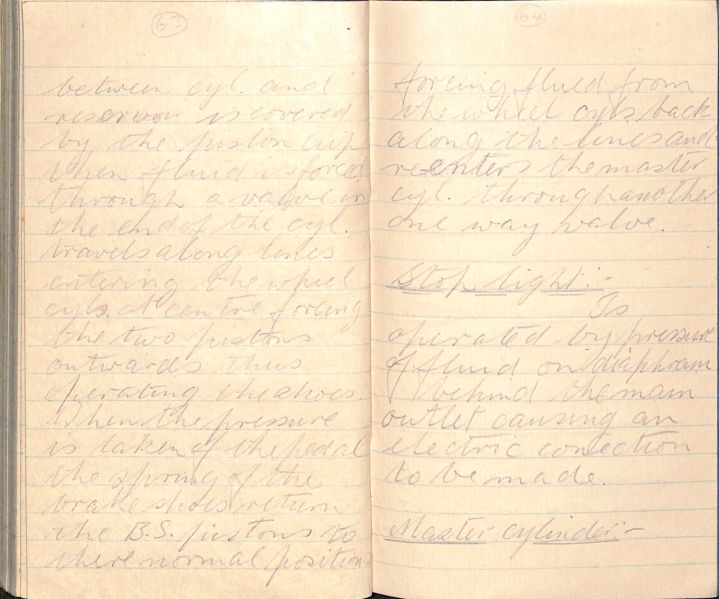 63
between cyl. and
reservoir is covered
by the piston cup
when fluid is forced
through a valve in
the end of the cyl.
travels along lines
entering the wheel
cyls. at centre forcing
the two pistons
outwards thus
operating the shoes.
When the pressure
is taken of the pedal
the spring of the
brake shoes return
the B.S. pistons to
there normal positions
64
forcing fluid from
the wheel cyls. back
along the lines and
re-enters the master
cyl. through another
one way valve.
Stop light:-
Is
operated by pressure
of fluid on diaphram
behind the main
outlet causing an
electric conection
to be made.
Master cylinder:-